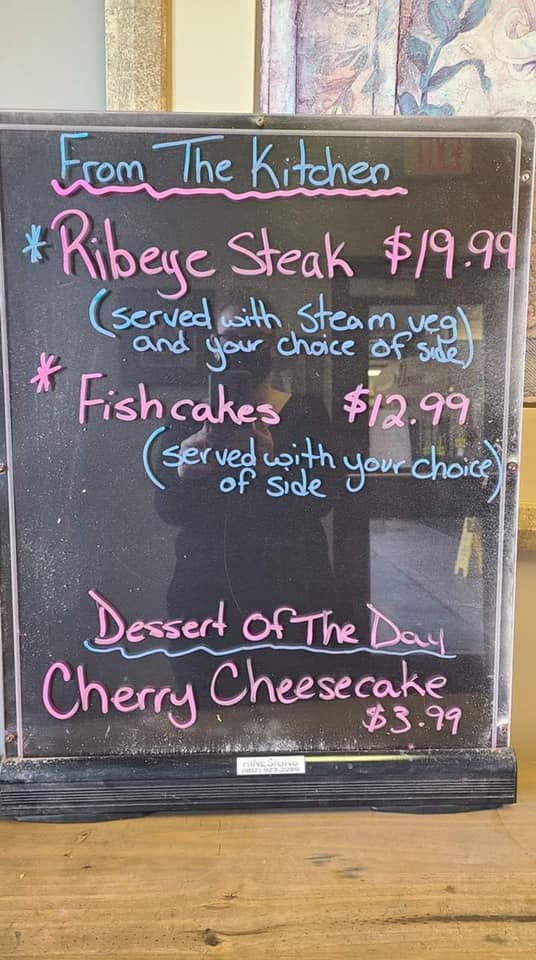 From The Kitchen
* Ribeye Steak $19.99
(served with steam veg
and your choice of side)
* Fishcakes $12.99
(served with your choice
of side)
Dessert Of The Day
Cherry Cheesecake
$3.99